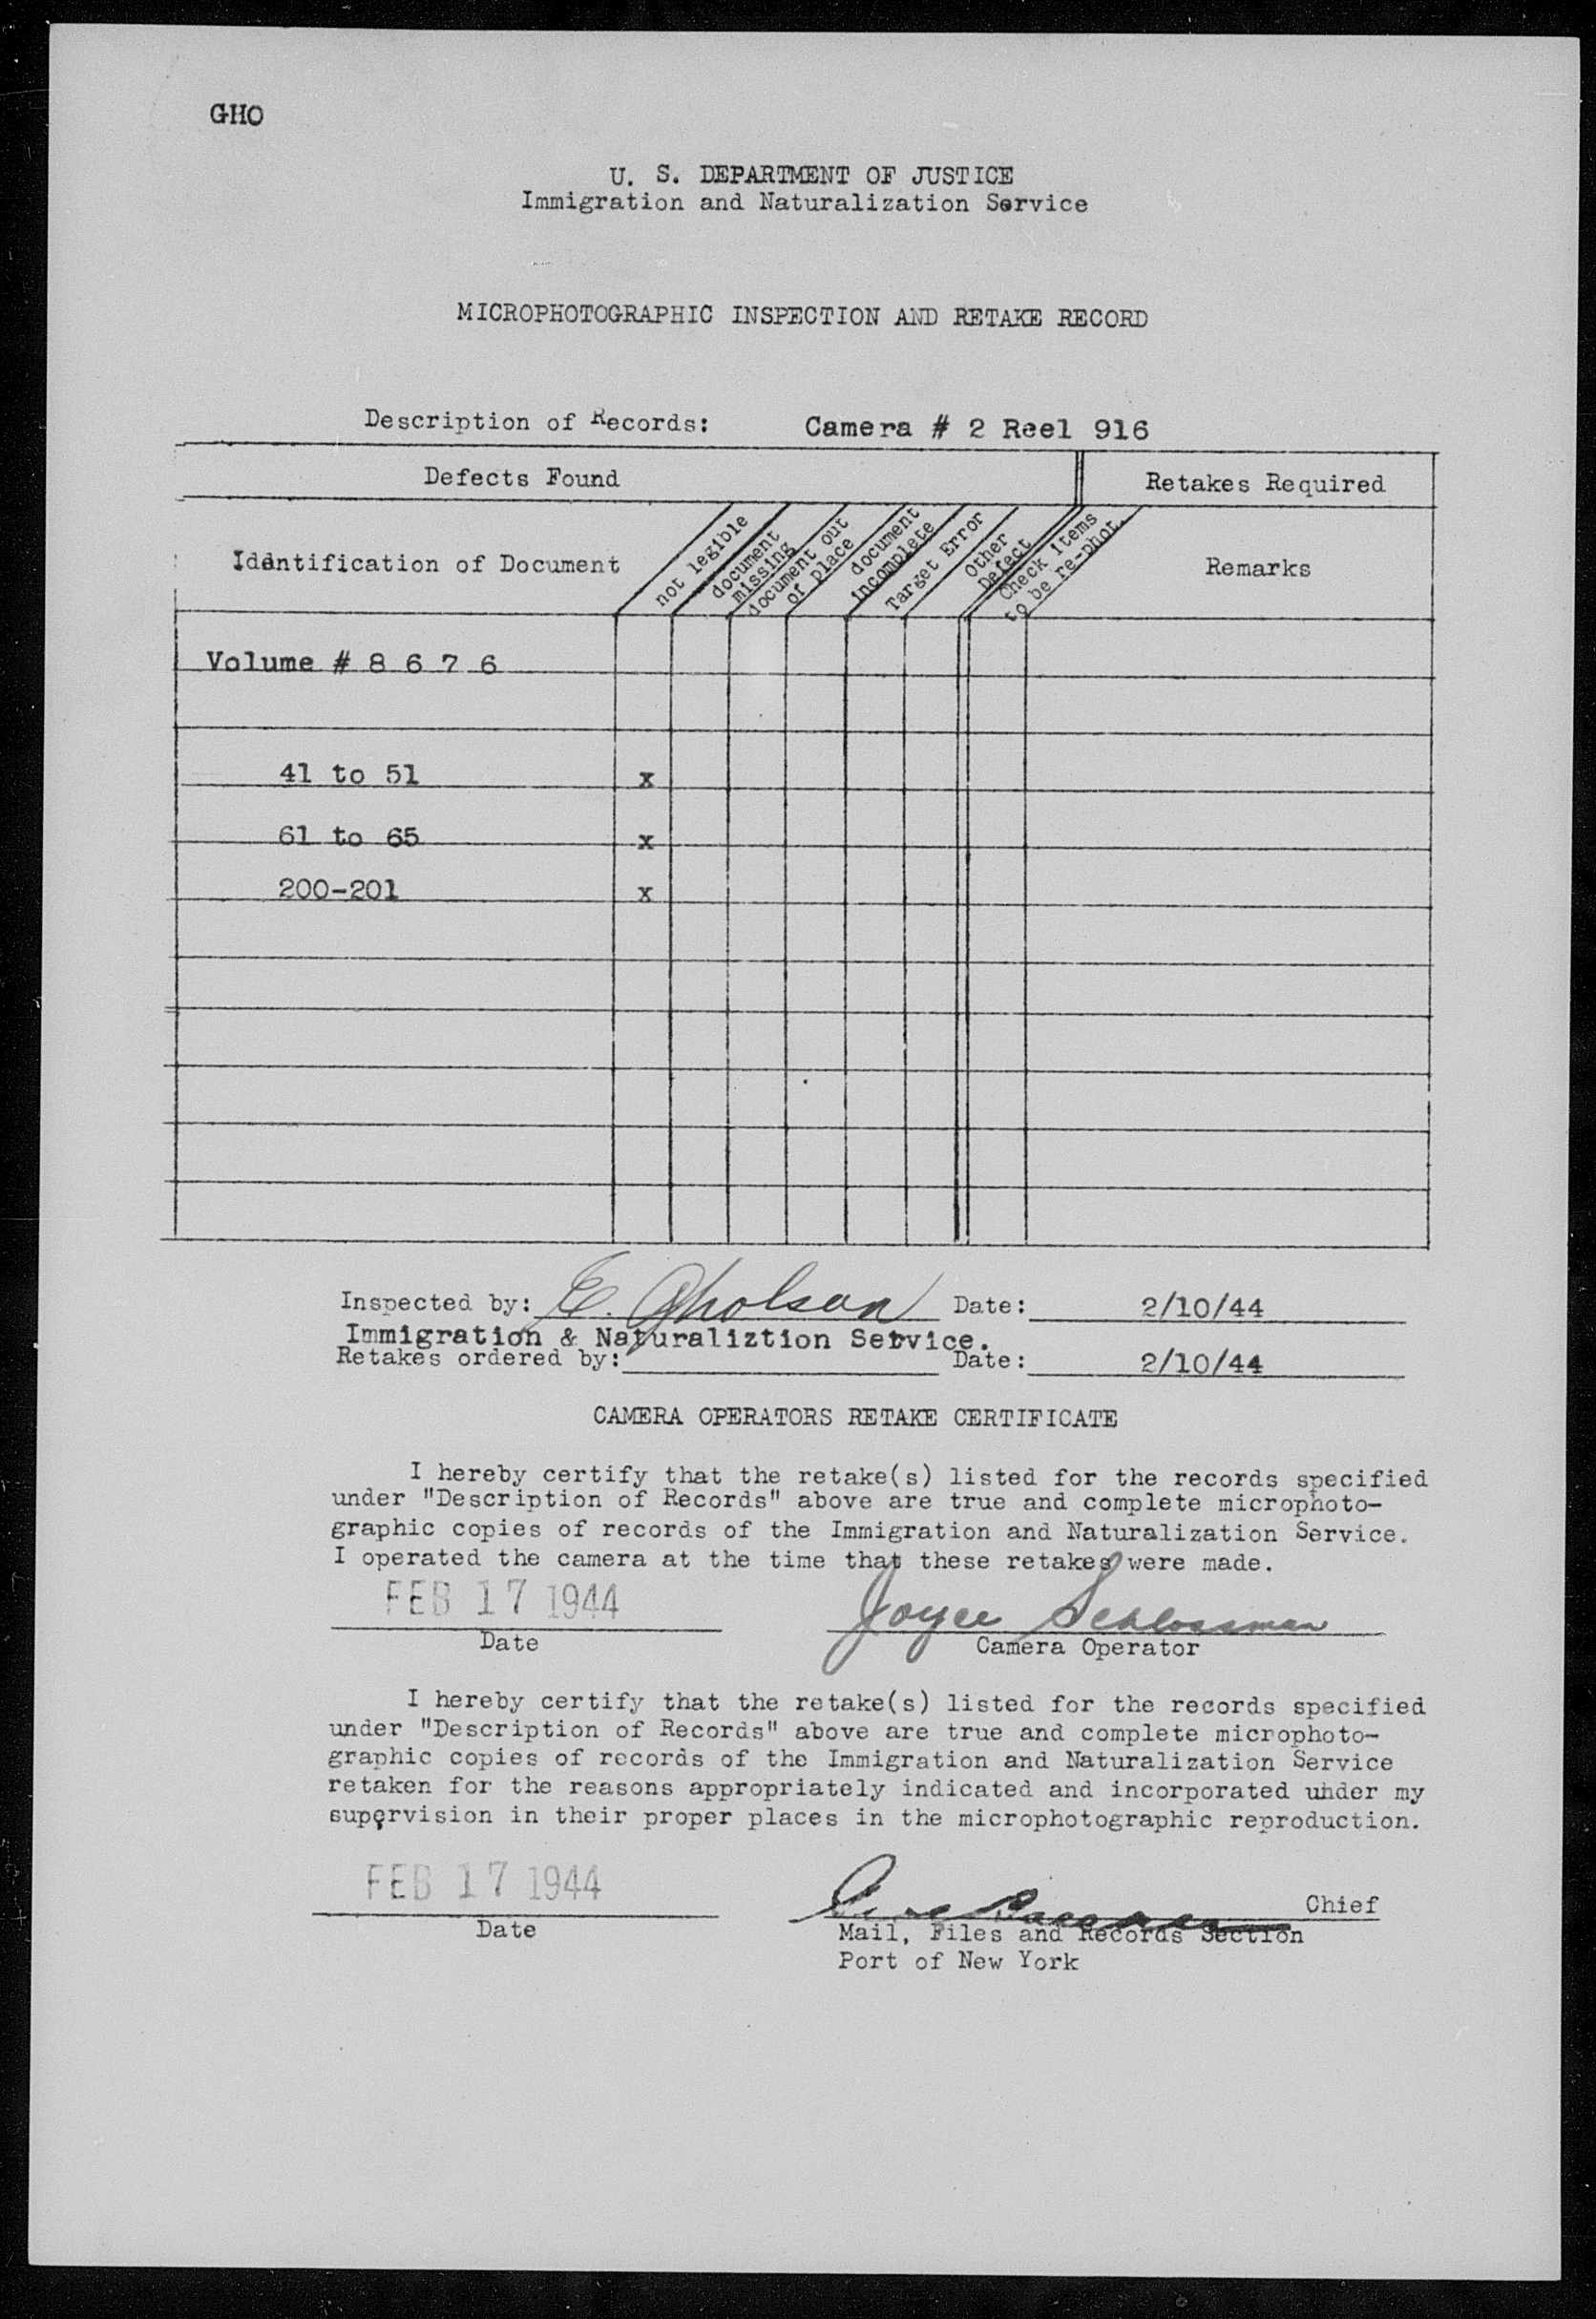 GHO
U. S. DEPARTMENT OF JUSTICE
Immigration and Naturalization Service
MICROPHOTOGRAPHIC INSPECTION AND RETAKE RECORD
Description of Records: Camera # 2 Reel 916
Defects Found
Retakes Required
Identification of Document
not legible
document missing
document out of place
document incomplete
Target Error
Other Defect
Check Items to be re-phot.
Remarks
Volume # 8 6 7 6
41 to 51 x
61 to 65 x
200-201 x
Inspected by: E. Gholson Date: 2/10/44
Immigration & Naturaliztion Setvice.
Retakes ordered by: Date: 2/10/44
CAMERA OPERATORS RETAKE CERTIFICATE
I hereby certify that the retake(s) listed for the records specified
under "Description of Records" above are true and complete microphoto-
graphic copies of records of the Immigration and Naturalization Service.
I operated the camera at the time that these retakes were made.
FEB 17 1944 Joyce Schlossman
Date Camera Operator
I hereby certify that the retake(s) listed for the records specified
under "Description of Records" above are true and complete microphoto-
graphic copies of records of the Immigration and Naturalization Service
retaken for the reasons appropriately indicated and incorporated under my
supervision in their proper places in the microphotographic reproduction.
FEB 17 1944 Chief
Date Mail, Files and Records Section
Port of New York